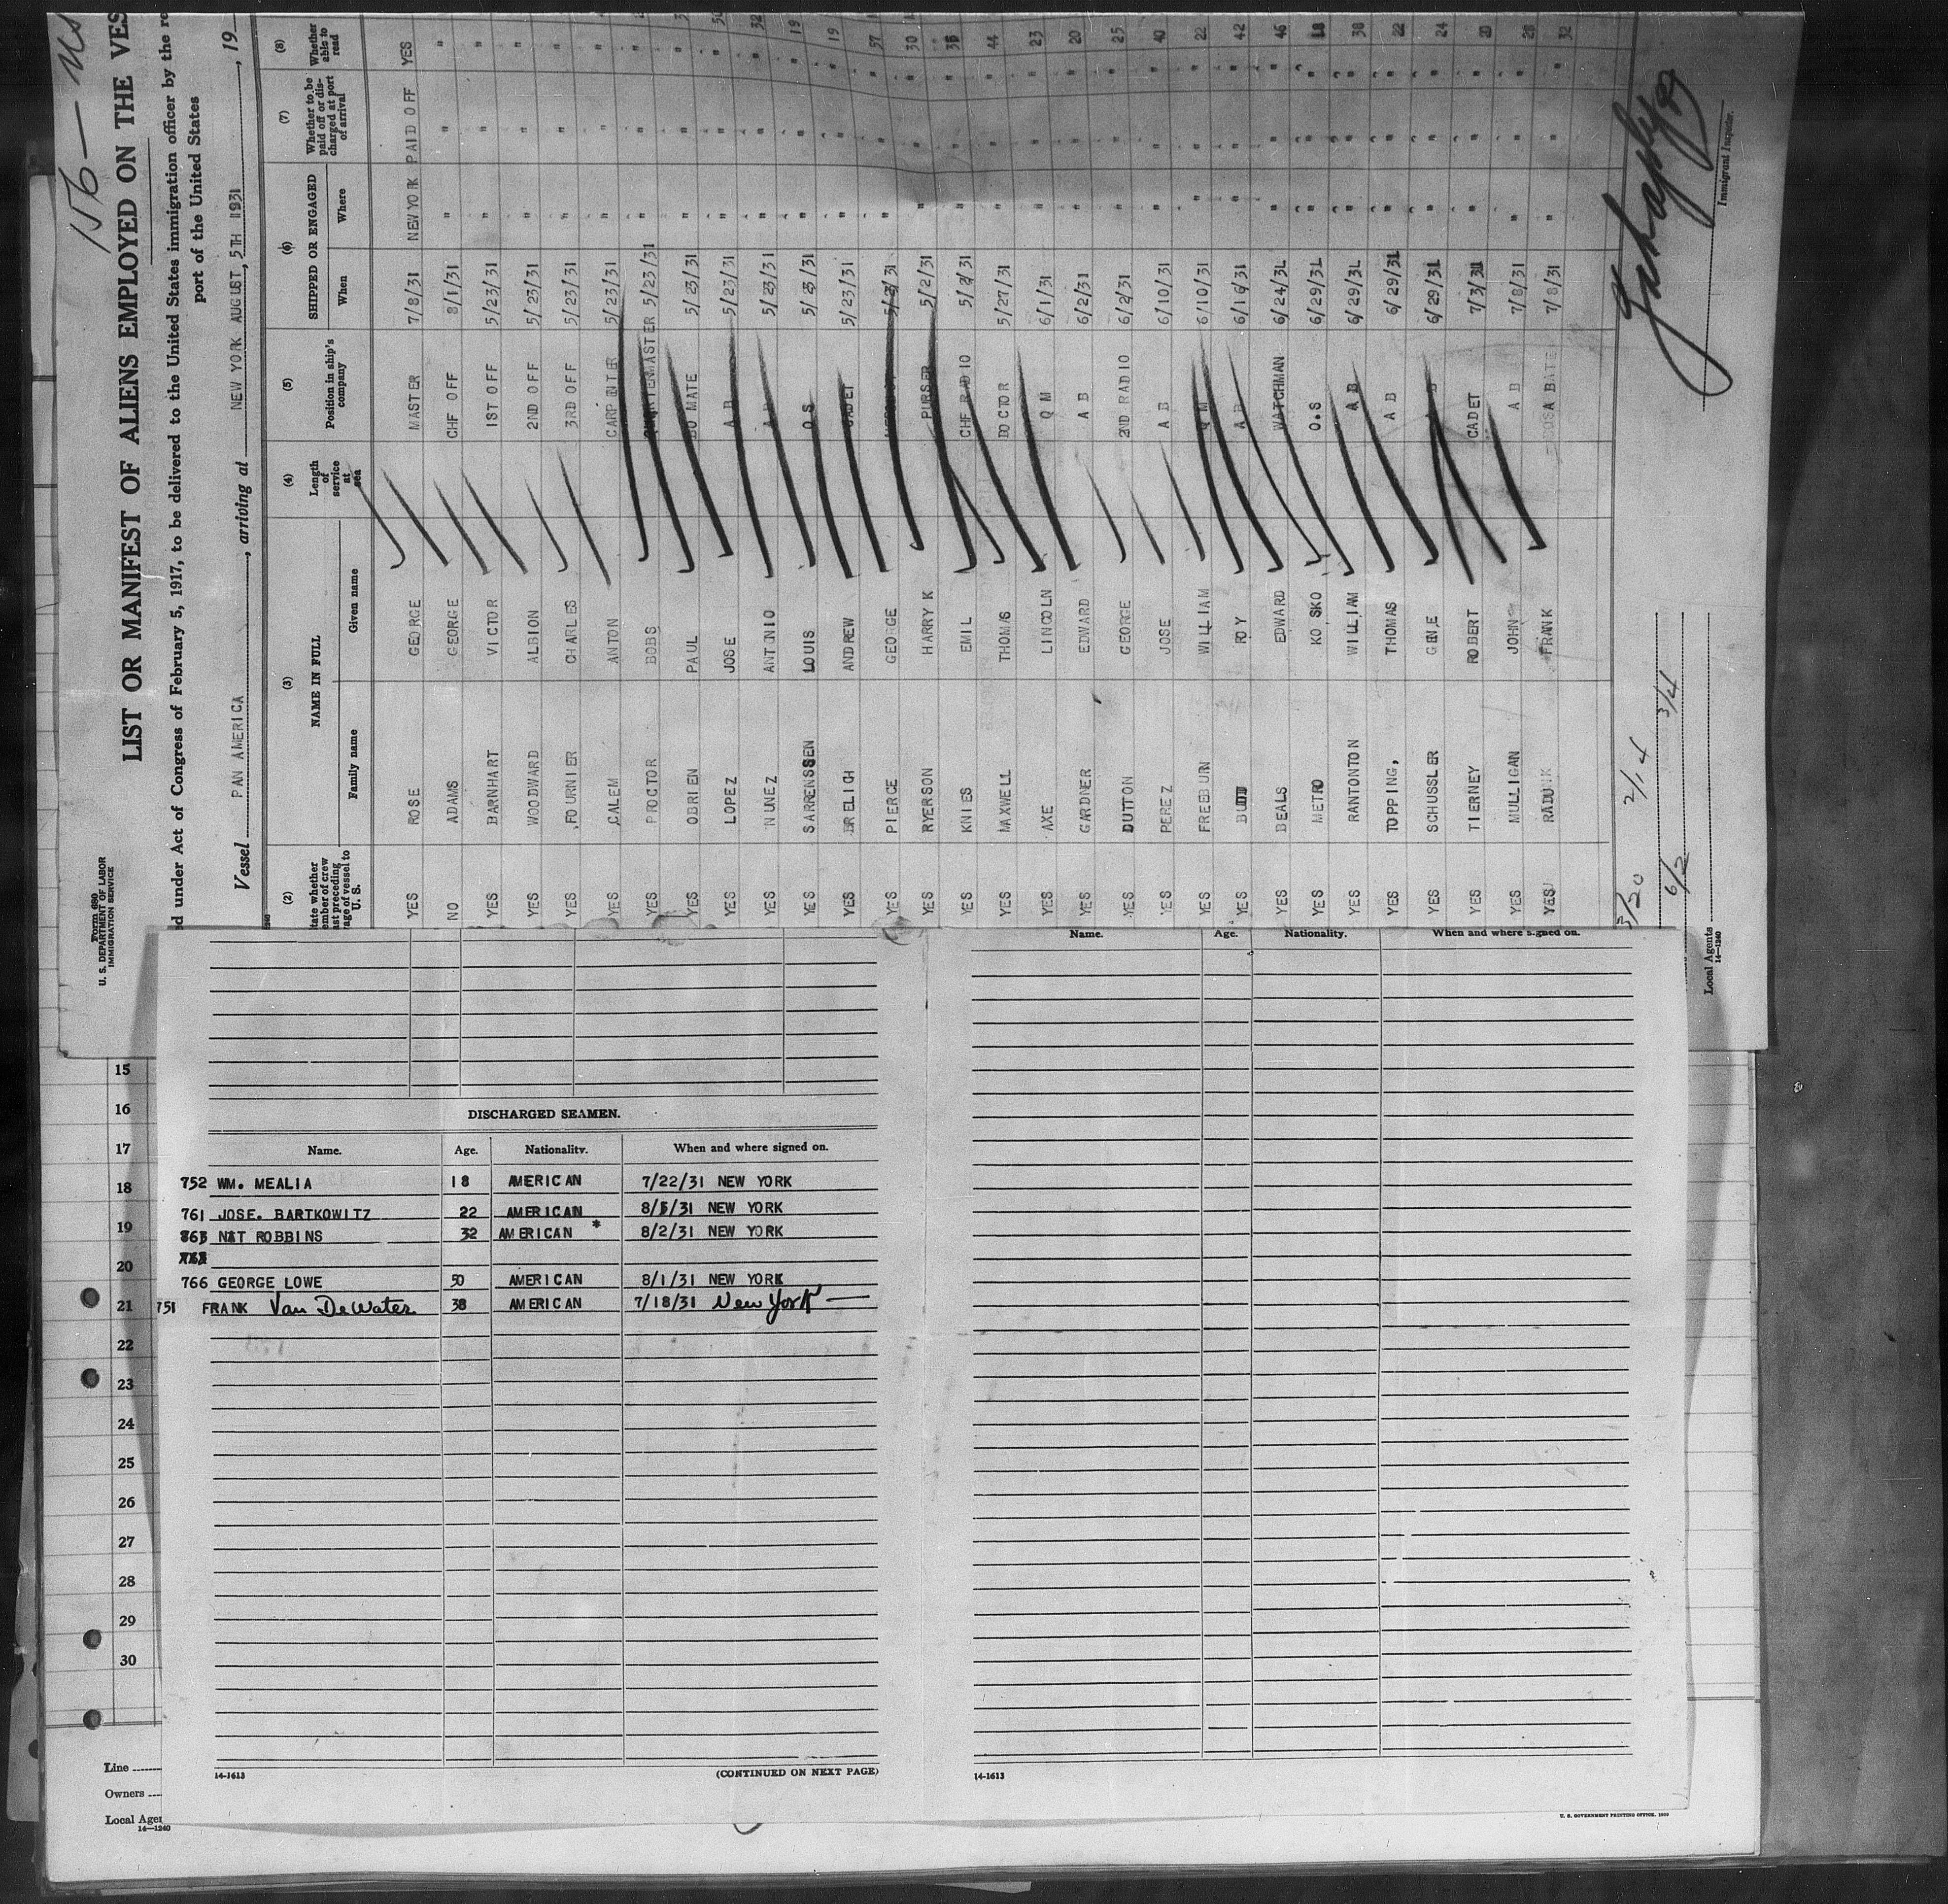 156—
LIST OR MANIFEST OF ALIENS EMPLOYED ON THE VES
Form 680
U. S. DEPARTMENT OF LABOR
IMMIGRATION SERVICE
d under Act of Congress of February 5, 1917, to be delivered to the United States immigration officer by the re
port of the United States
Vessel PAN AMERICA, arriving at NEW YORK AUGUST, 5TH 1931, 19
(2) (3) (4) (5) (6) (7) (8)
tate whether member of crew ast preceding age of vessel to U. S. NAME IN FULL Length of service at sea Position in ship's company SHIPPED OR ENGAGED Whether to be paid off or discharged at port of arrival Whether able to read
Family name Given name When Where
YES ROSE GEORGE MASTER 7/8/31 NEW YORK PAID OFF YES
NO ADAMS GEORGE CHF OFF 8/1/31 " " "
YES BARNHART VICTOR 1ST OFF 5/23/31 " " "
YES WOODWARD ALBION 2ND OFF 5/23/31 " " "
YES FOURNIER CHARLES 3RD OFF 5/23/31 " " "
YES CALEM ANTON CARPENTER 5/23/31 " " "
YES PROCTOR BOBS QUARTERMASTER 5/23/31 " " "
YES OBRIEN PAUL BO MATE 5/23/31 " " "
YES LOPEZ JOSE A B 5/23/31 " " "
YES NUNEZ ANTONIO A B 5/23/31 " " " 32
YES SARRENSSEN LOUIS O S 5/23/31 " " " 19
YES BRELICH ANDREW CADET 5/23/31 " " " 19
YES PIERCE GEORGE 5/23/31 " " " 57
YES RYERSON HARRY K PURSER 5/2/31 " " " 30
YES KNIES EMIL CHF RADIO 5/2/31 " " " 36
YES MAXWELL THOMAS DOCTOR 5/27/31 " " " 44
YES AXE LINCOLN Q M 6/1/31 " " " 23
YES GARDNER EDWARD A B 6/2/31 " " " 20
YES DUTTON GEORGE 2ND RADIO 6/2/31 " " " 25
YES PEREZ JOSE A B 6/10/31 " " " 40
YES FREEBURN WILLIAM Q M 6/10/31 " " " 22
YES ROY A B 6/16/31 " " " 42
YES BEALS EDWARD WATCHMAN 6/24/31 " " " 46
YES METRO KOSKO O.S 6/29/31 " " " 18
YES RANTONTON WILLIAM A B 6/29/31 " " " 38
YES TOPPING, THOMAS A B 6/29/31 " " " 22
YES SCHUSSLER GENE A B 6/29/31 " " " 24
YES TIERNEY ROBERT CADET 7/3/31 " " " 20
YES MULLIGAN JOHN A B 7/8/31 " " " 28
YES RADUNK FRANK 7/8/31 " " " 32
3/20 2/14
6/2 3/4
Immigrant Inspector.
Local Agents
14—1240
15
16
17
18
19
20
21
22
23
24
25
26
27
28
29
30
Line
Owners
Local Agen
14—1240
DISCHARGED SEAMEN.
Name. Age. Nationality. When and where signed on.
752 WM. MEALIA 18 AMERICAN 7/22/31 NEW YORK
761 JOSE. BARTKOWITZ 22 AMERICAN 8/5/31 NEW YORK
763 NAT ROBBINS 32 AMERICAN * 8/2/31 NEW YORK
766 GEORGE LOWE 50 AMERICAN 8/1/31 NEW YORK
751 FRANK Van DeWater 38 AMERICAN 7/18/31 New York —
14-1613 (CONTINUED ON NEXT PAGE)
Name. Age. Nationality. When and where signed on.
14-1613
U. S. GOVERNMENT PRINTING OFFICE. 1930